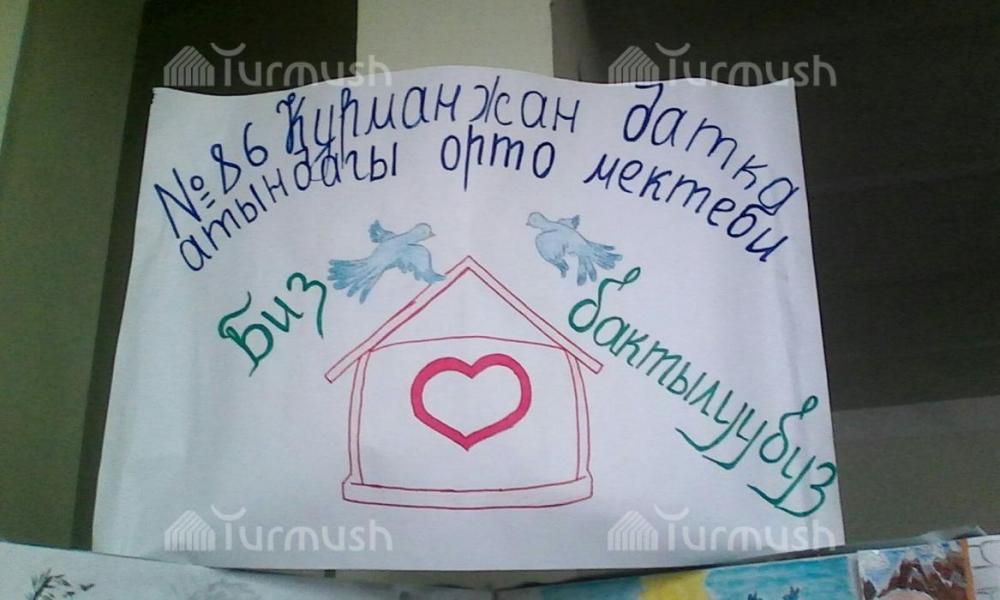 Turmush Turmush
№86 Курманжан датка
атындагы орто мектеби
Биз бактылуубуз
Turmush Turmush